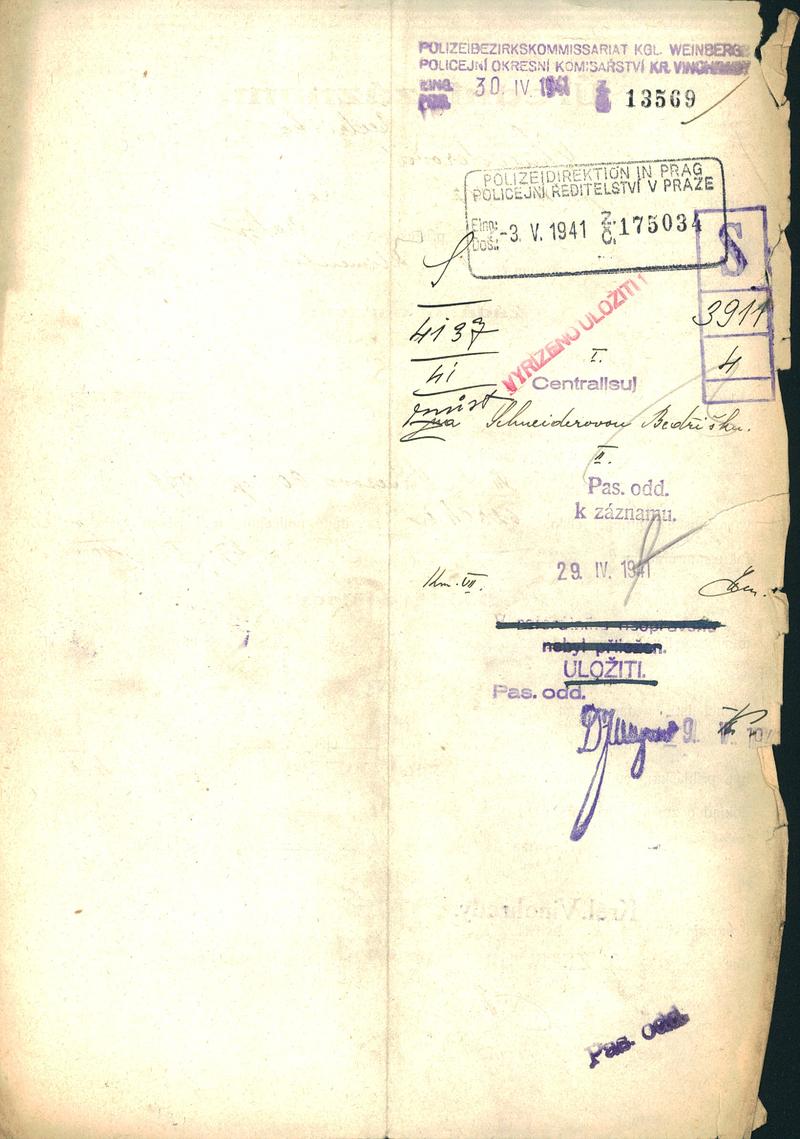 POLIZEIBEZIRKSKOMMISSARIAT KGL. WEINBERGE
POLICEJNÍ OKRESNÍ KOMISAŘSTVÍ KR. VINOHRADY
EING. DOŠ. 30. IV. 1941 Z Č 13569
POLIZEIDIREKTION IN PRAG
POLICEJNÍ ŘEDITELSTVÍ V PRAZE
Eing: Doš.: -3. V. 1941 Z. Č. 175034
S
S
3911
4
4137
41
VYŘÍZENO ULOŽITI!
I.
Centralisuj
Schneiderovou Bedřišku.
II.
Pas. odd.
k záznamu.
Km. VII.
29. IV. 1941
nebyl přiložen.
ULOŽITI.
Pas. odd.
9. V.
Král. Vinohrady.
Pas. odd.